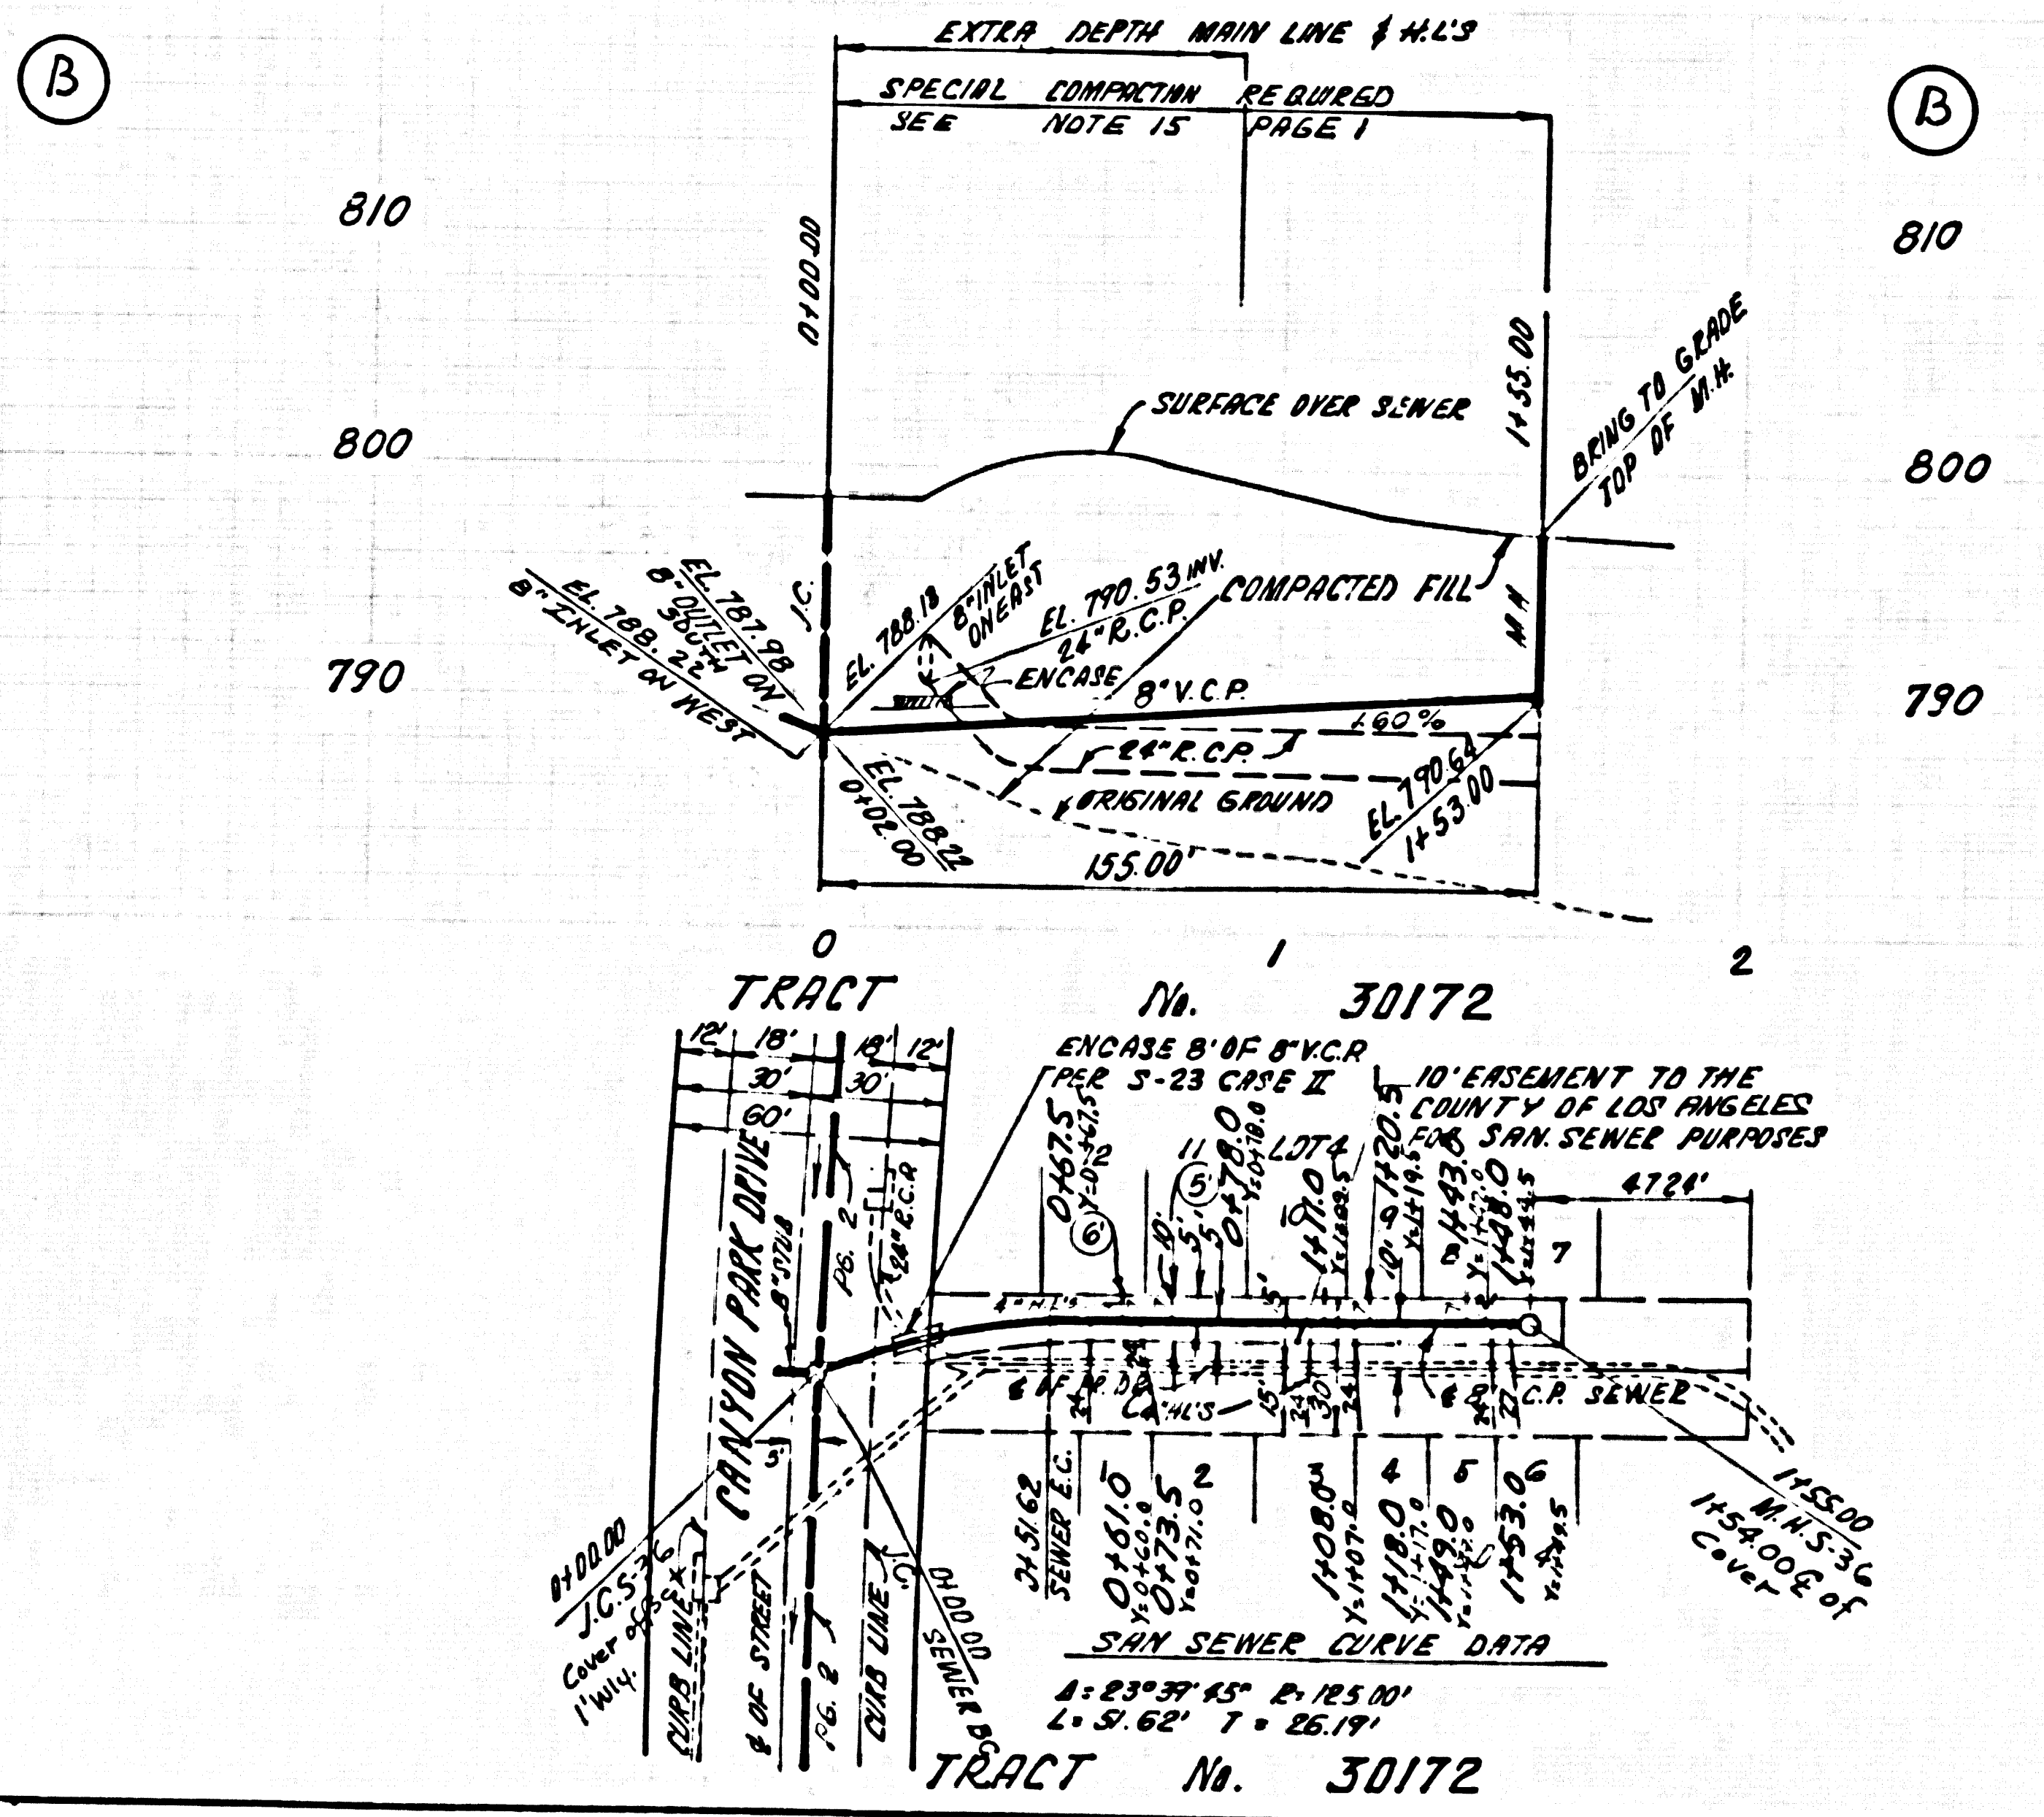 EXTRA DEPTH MAIN LINE & H.L'S
B
B
SPECIAL COMPACTION REQUIRED
SEE NOTE 15 PAGE 1
810
810
0+00.00
1+55.00
BRING TO GRADE
TOP OF M.H.
SURFACE OVER SEWER
800
800
J.C.
M H
EL. 787.98
8" OUTLET ON
SOUTH
EL. 788.22
8" INLET ON WEST
EL. 788.18
8" INLET
ON EAST
EL. 790.53 INV.
24" R.C.P.
COMPACTED FILL
ENCASE
8" V.C.P.
790
790
1.60%
24" R.C.P.
ORIGINAL GROUND
EL. 788.22
0+02.00
EL. 790.64
1+53.00
155.00'
0
1
2
TRACT No. 30172
12' 18' 18' 12'
30' 30'
60'
ENCASE 8' OF 8" V.C.P.
PER S-23 CASE II
10' EASEMENT TO THE
COUNTY OF LOS ANGELES
FOR SAN. SEWER PURPOSES
CANYON PARK DRIVE
8" STUB
PG. 2
24" R.C.P.
0+67.5
Y=0+67.5
12
6
11
5
10'
5'
5'
0+78.0
Y=0+78.0
LOT 4
10
1+11.0
10'
9
1+20.5
Y=1+19.5
8
1+43.0
1+48.0
7
47.24'
4" H.L'S
5'
24
15'
24
30'
24
24
27
C.P. SEWER
5'
0+51.62
SEWER E.C.
1
0+61.0
Y=0+60.0
0+73.5
Y=0+71.0
2
3
1+08.0
Y=1+07.0
4
1+18.0
Y=1+17.0
5
1+49.0
6
1+53.0
1+55.00
M.H. S-36
1+54.00 ₵ of
Cover
0+00.00
J.C. S-36
Cover
1' Wly.
CURB LINE
₵ OF STREET
PG. 2
CURB LINE
J.C.
0+00.00
SEWER BC
SAN SEWER CURVE DATA
Δ= 23°39'45" R= 125.00'
L= 51.62' T = 26.19'
TRACT No. 30172